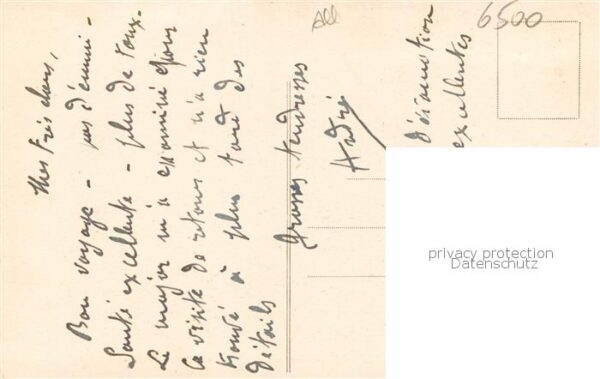 Mes très chers,
Bon voyage - pas d'ennui -
Santé excellente - plus de toux -
Le major m'a examiné
Ce visite de retour et n'a rien
trouvé à plus tard des
détails
Grosses tendresses
André
excellentes
All
6500
privacy protection
Datenschutz